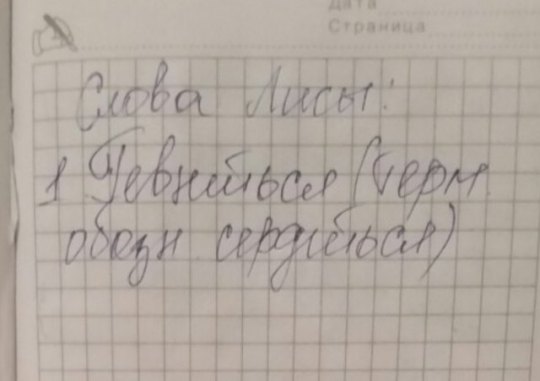 Дата
Страница
Слова Лисы:
1 Гевниться (терм
обозн сердиться)